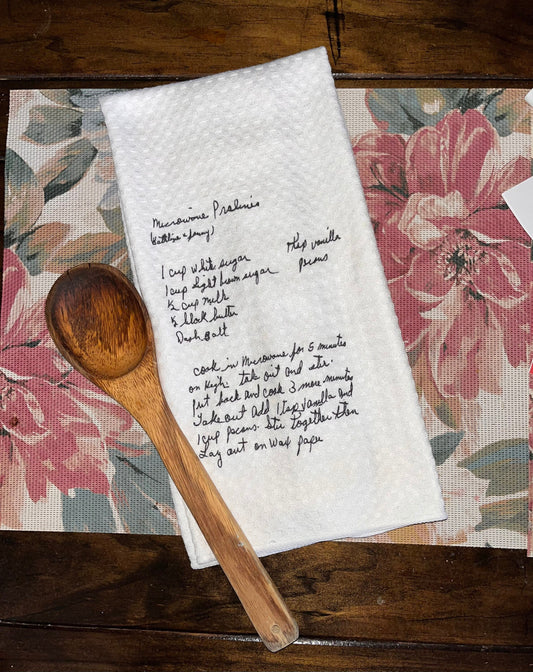 Microwave Pralines
1 cup white sugar
1 cup light brown sugar
½ cup milk
½ block butter
Dash salt
1 tsp vanilla
pecans
cook in Microwave for 5 minutes
on high. take out and stir.
Put back and cook 3 more minutes
Take out add 1 tsp vanilla and
1 cup pecans. Stir together then
Lay out on wax paper